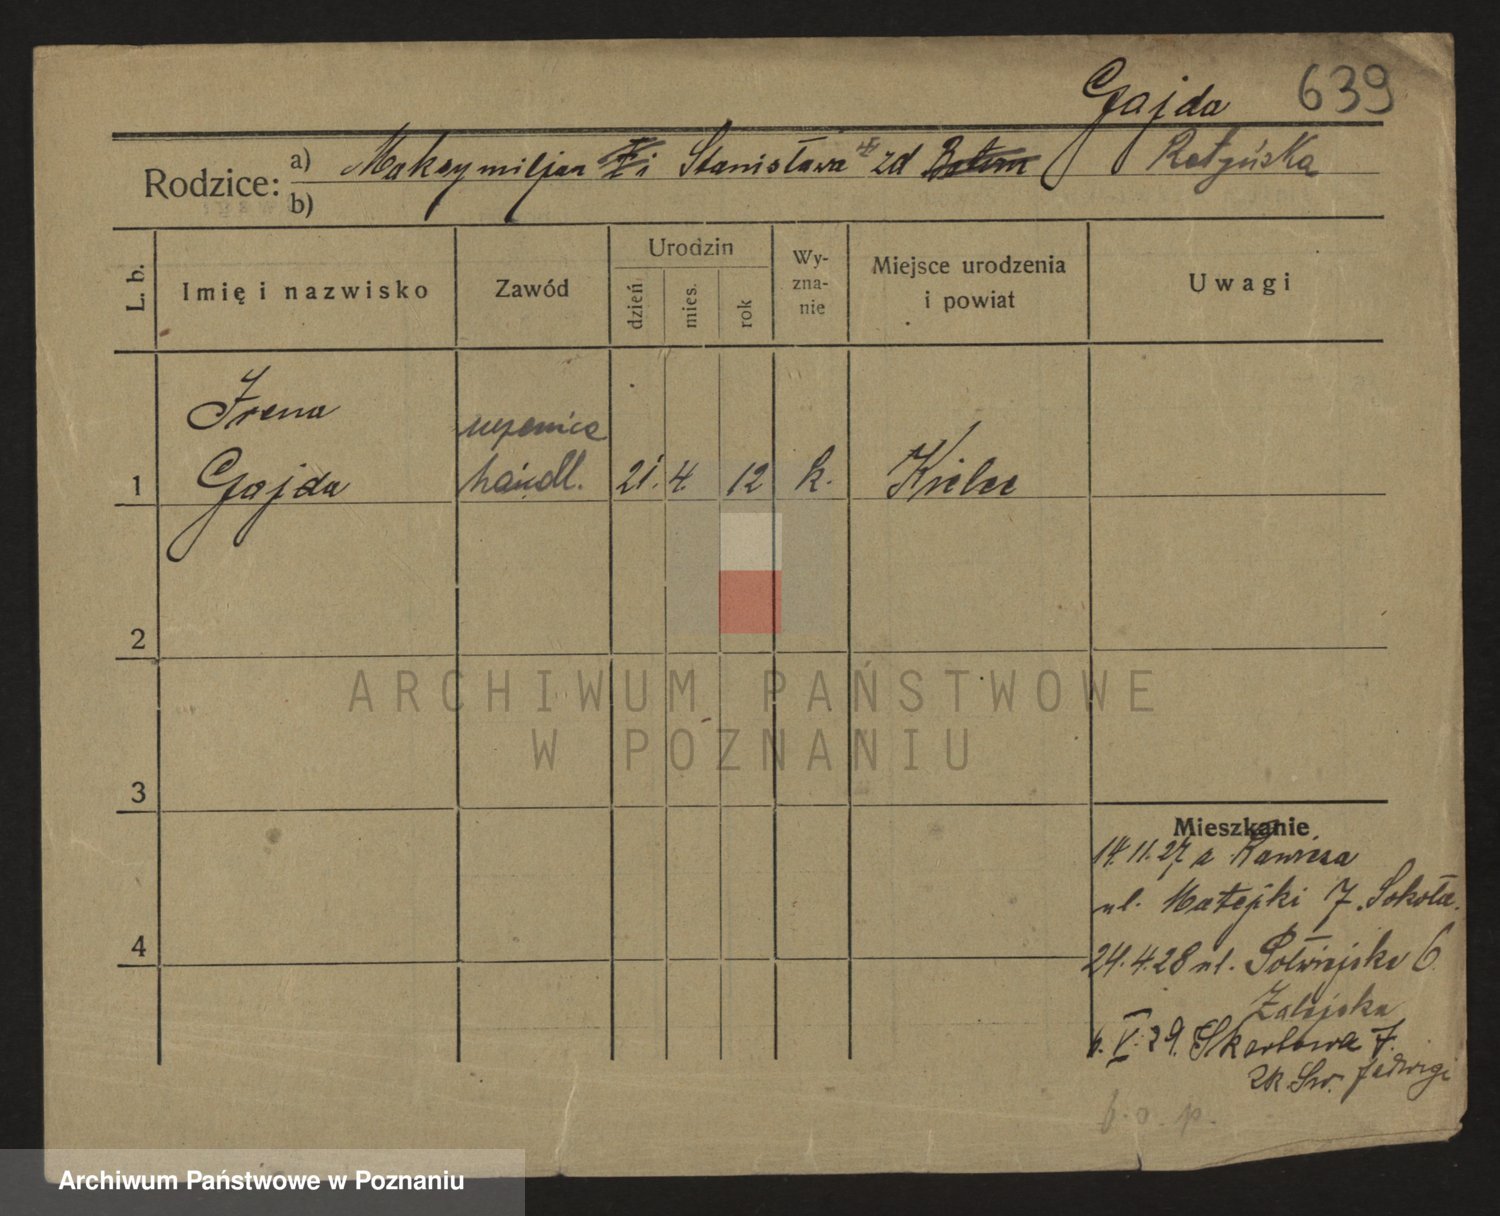 Gajda 639
Rodzice: a) Maksymiljan i Stanisława zd Ratyńska
b)
L. b. Imię i nazwisko Zawód Urodzin dzień mies. rok Wy-zna-nie Miejsce urodzenia i powiat Uwagi
Irena
uczenica
1 Gajda handl. 21. 4. 12 k. Kielce
2
ARCHIWUM PAŃSTWOWE
W POZNANIU
3
Mieszkanie
14.11.27 z Rawicza
ul. Matejki 7. Sokoła.
4
24.4.28 ul. Półwiejska 6
Zalejska
6. V. 29. Skarbowa 7.
zk. Św. Jadwigi
b. o. p.
Archiwum Państwowe w Poznaniu